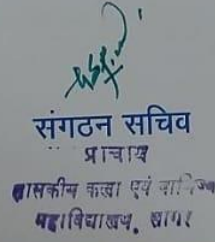 संगठन सचिव
प्राचार्य
शासकीय कला एवं वाणिज्य
महाविद्यालय, सागर